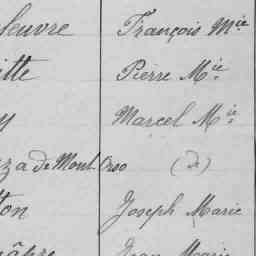 leuvre François Mie
itte Pierre Mie
y Marcel Mie
za de Mont Orso (d°)
ton Joseph Marie
âpre Jean Marie